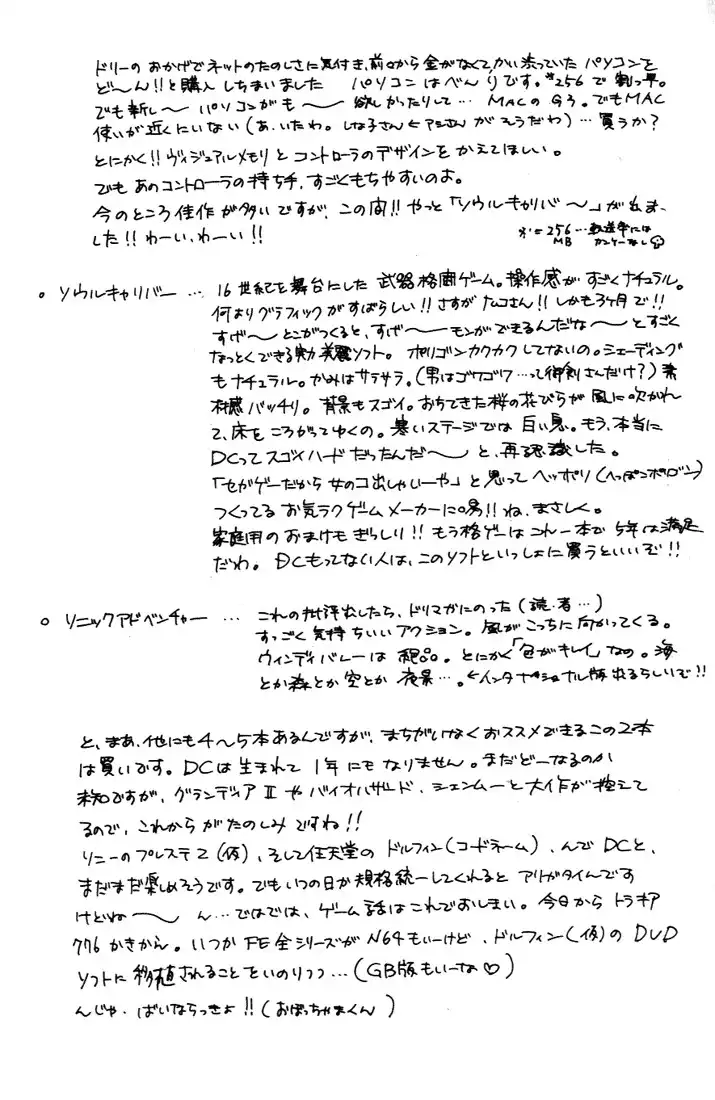 ドリーのおかげでネットのたのしさに気付き、前々から金がなくてかい渋っていたパソコンを
ど〜ん!!と購入しちまいました　パソコンはべんりです。*256で割っ早。
でも新し〜パソコンがも〜〜欲しかったりして…MACのG3。でもMAC
使いが近くにいない(あ、いたわ。しな子さん←アシさんがそうだわ)…買うか?
とにかく!!ヴィジュアルメモリとコントローラのデザインをかえてほしい。
でもあのコントローラの持ち手、すごくもちやすいのよ。
今のところ佳作が多いですが、この間!!やっと「ソウルキャリバ〜」が出ま
した!!わーい、わーい!!
※=256…転送率には
MB カンケーなし
○ソウルキャリバー…16世紀を舞台にした武器格闘ゲーム。操作感がすごくナチュラル。
何よりグラフィックがすばらしい!!さすがナムコさん!!しかも3ヶ月で!!
すげ〜とこがつくると、すげ〜〜モンができるんだな〜〜とすごく
なっとくできる美麗ソフト。ポリゴンカクカクしてないの。シェーディング
もナチュラル。かみはサラサラ。(男はゴワゴワ…って御剣さんだけ?)素
材感バッチリ。背景もスゴイ。おちてきた桜の花びらが風に吹かれ
て、床をころがってゆくの。寒いステージでは白い息。もう、本当に
DCってスゴイハードだったんだ〜と、再認識した。
「セガゲーだから女のコ出しゃいーや」と思ってヘッポリ(へっぽこポリゴン)
つくってるお気ラクゲームメーカーに喝!!ね、まさしく。
家庭用のおまけもぎっしり!!もう格ゲーはこれ一本で5年は満足
だわ。DCもってない人は、このソフトといっしょに買うといいぞ!!
○ソニックアドベンチャー…これの批評出したら、ドリマガにのった(読・者…)
すっごく気持ちいいアクション。風がこっちに向かってくる。
ウィンディバレーは絶品。とにかく「色がキレイ」なの。海
とか森とか空とか夜景…。←インタナショナル版出るらしいぞ!!
と、まあ、他にも4〜5本あるんですが、まちがいなくおススメできるこの2本
は買いです。DCは生まれて1年にもなりません。まだどーなるのか
未知ですが、グランディアⅡやバイオハザード、シェンムーと大作が控えて
るので、これからがたのしみですね!!
ソニーのプレステ2(仮)、そして任天堂のドルフィン(コードネーム)、んでDCと、
まだまだ楽しめそうです。でもいつの日か規格統一してくれるとアリガタイんです
けどね〜〜ん…ではでは、ゲーム話はこれでおしまい。今日からトラキア
776かきかん。いつかFE全シリーズがN64もいーけど、ドルフィン(仮)のDVD
ソフトに移植されることをいのりつつ…(GB版もいーな♡)
んじゃ、ばいならっきょ!!(おぼっちゃまくん)